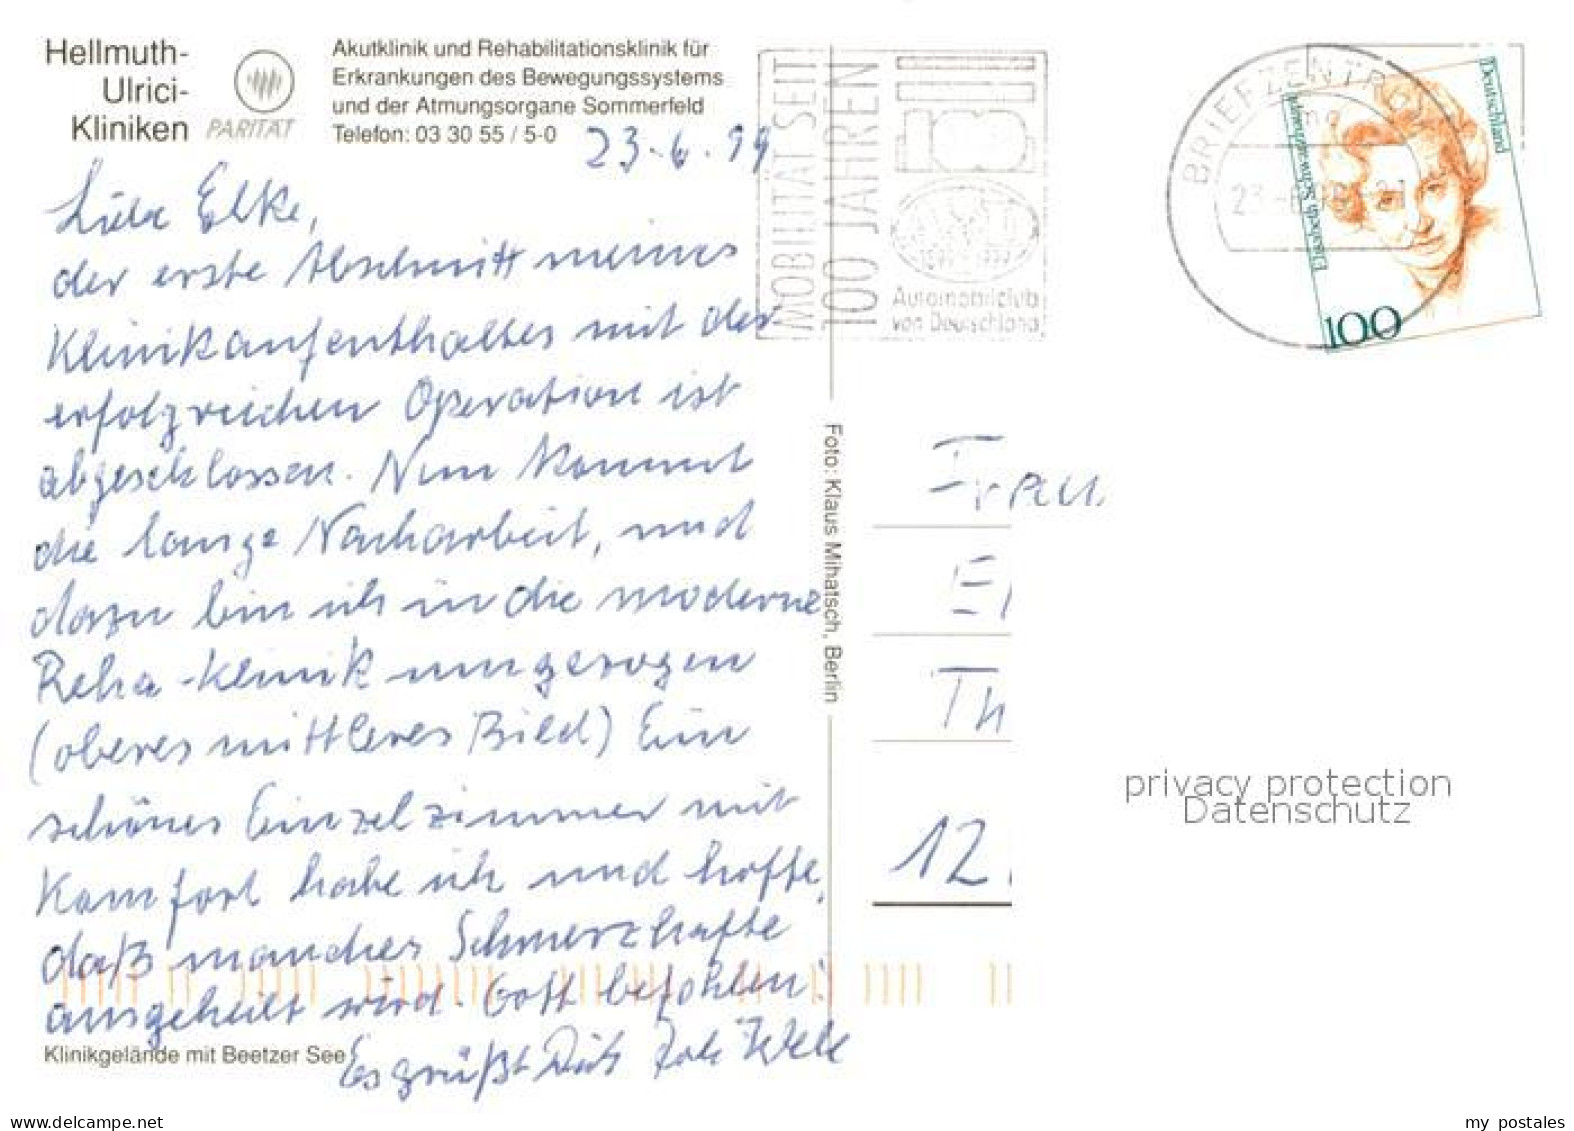 Hellmuth-
Ulrici-
Kliniken
PARITÄT
Akutklinik und Rehabilitationsklinik für
Erkrankungen des Bewegungssystems
und der Atmungsorgane Sommerfeld
Telefon: 03 30 55 / 5-0
23.6.99
Liebe Elke,
der erste Abschnitt meines
Klinikaufenthaltes mit der
erfolgreichen Operation ist
abgeschlossen. Nun kommt
die lange Nacharbeit, und
dazu bin ich in die moderne
Reha-Klinik umgezogen
(oberes mittleres Bild) Ein
schönes Einzelzimmer mit
Komfort habe ich und hoffe,
daß manches Schmerzhafte
ausgeheilt wird. Gott befohlen!
Es grüßt Dich
Klinikgelände mit Beetzer See
Foto: Klaus Mihatsch, Berlin
MOBILITÄT SEIT
100 JAHREN
1899-1999
Automobilclub
von Deutschland
BRIEFZENTRUM
Deutschland
Elisabeth Schwarzhaupt
100
Frau
El
Th
12
privacy protection
Datenschutz
www.delcampe.net
my postales